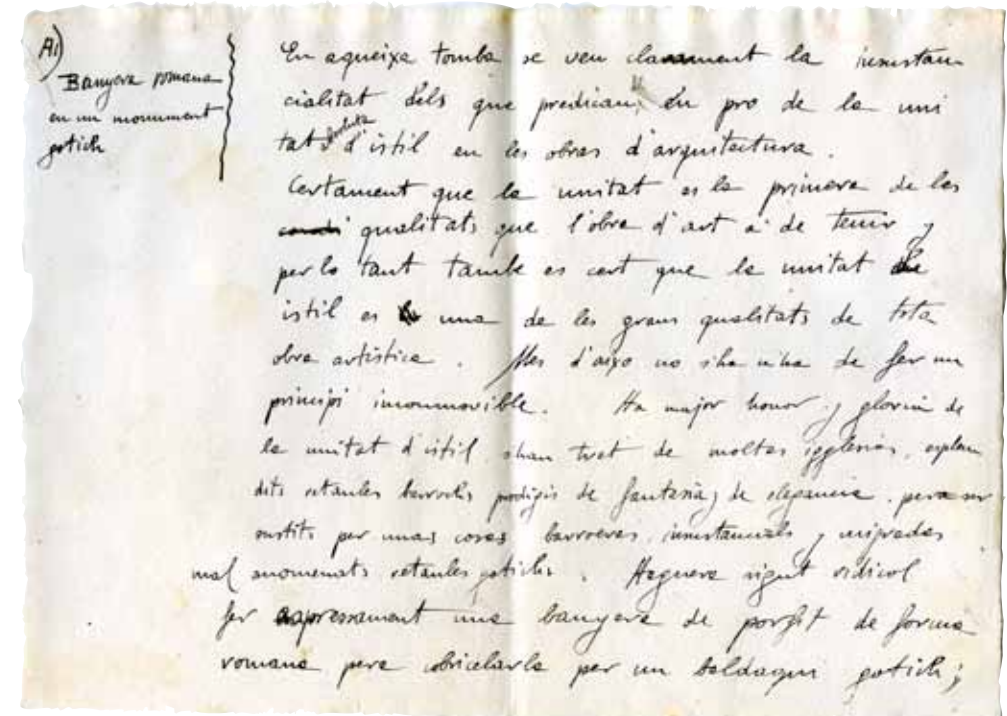 A1)
Banyera romana
en un monument
gotich
En aqueixa tomba se veu clarament la insustan
cialitat dels que predican, en pro de la uni
tat absoluta d'istil en les obras d'arquitectura.
Certament que la unitat es la primera de les
qualitats que l'obra d'art a de tenir y
per lo tant tambe es cert que la unitat de
istil es una de les grans qualitats de tota
obra artística. Mes d'aixo no s'ha de fer un
principi incommovible. Ha major honor y gloria de
la unitat d'istil shan tret de moltas igglesias, esplen
dits retaules barrochs prodigis de fantasia y de elegancia, pera ser
sustits per unas cosas barroeras, insustancials y migradas
mal anomenats retaules gotichs. Haguera sigut ridicol
fer expressament una banyera de porfit de forma
romana pera cobricelarla per un baldaqui gotich;